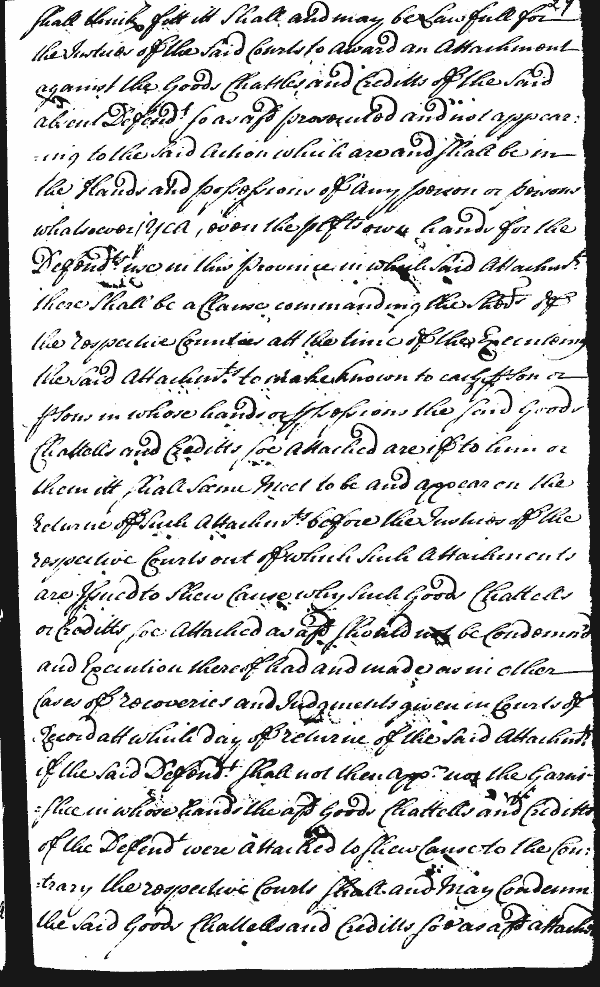 shall think fitt itt Shall and may be Lawfull for
the Justices of the Said Courts to award an Attachment
against the Goods Chattles and Creditts of the Said
absent Defendt. so as afd prosecuted and not appear:
:ing to the Said Action which are and shall be in
the Hands and possessions of Any person or persons
whatsoever, Yea, even the pltfs own hands for the
Defendts use in this Province in which Said Attachmt.
there Shall be a Clause commanding the Sherf of
the respective Counties att the time of the Executeing
the Said Attachmt. to make known to each pson or
psons in whose hands or possessions the said Goods
Chattells and Creditts soe Attached are if to him or
them itt shall Seme Meet to be and appear on the
Returne of Such Attachmts before the Justices of the
respective Courts out of which Such Attachments
are Issued to Shew Cause why such Goods Chattells
or Creditts soe Attached as afd should not be Condemnd
and Execution thereof had and made as in other
Cases of recoveries and Judgments given in Courts of
Record att which day of returne of the Said Attachmt.
if the Said Defendt. shall not then appr. nor the Garni:
:shee in whose hands the afd Goods Chattells and Creditts
of the Defendt were Attached to shew Cause to the Con:
:trary the respective Courts shall and May Condemn
the Said Goods Chattells and Creditts soe as afd attached